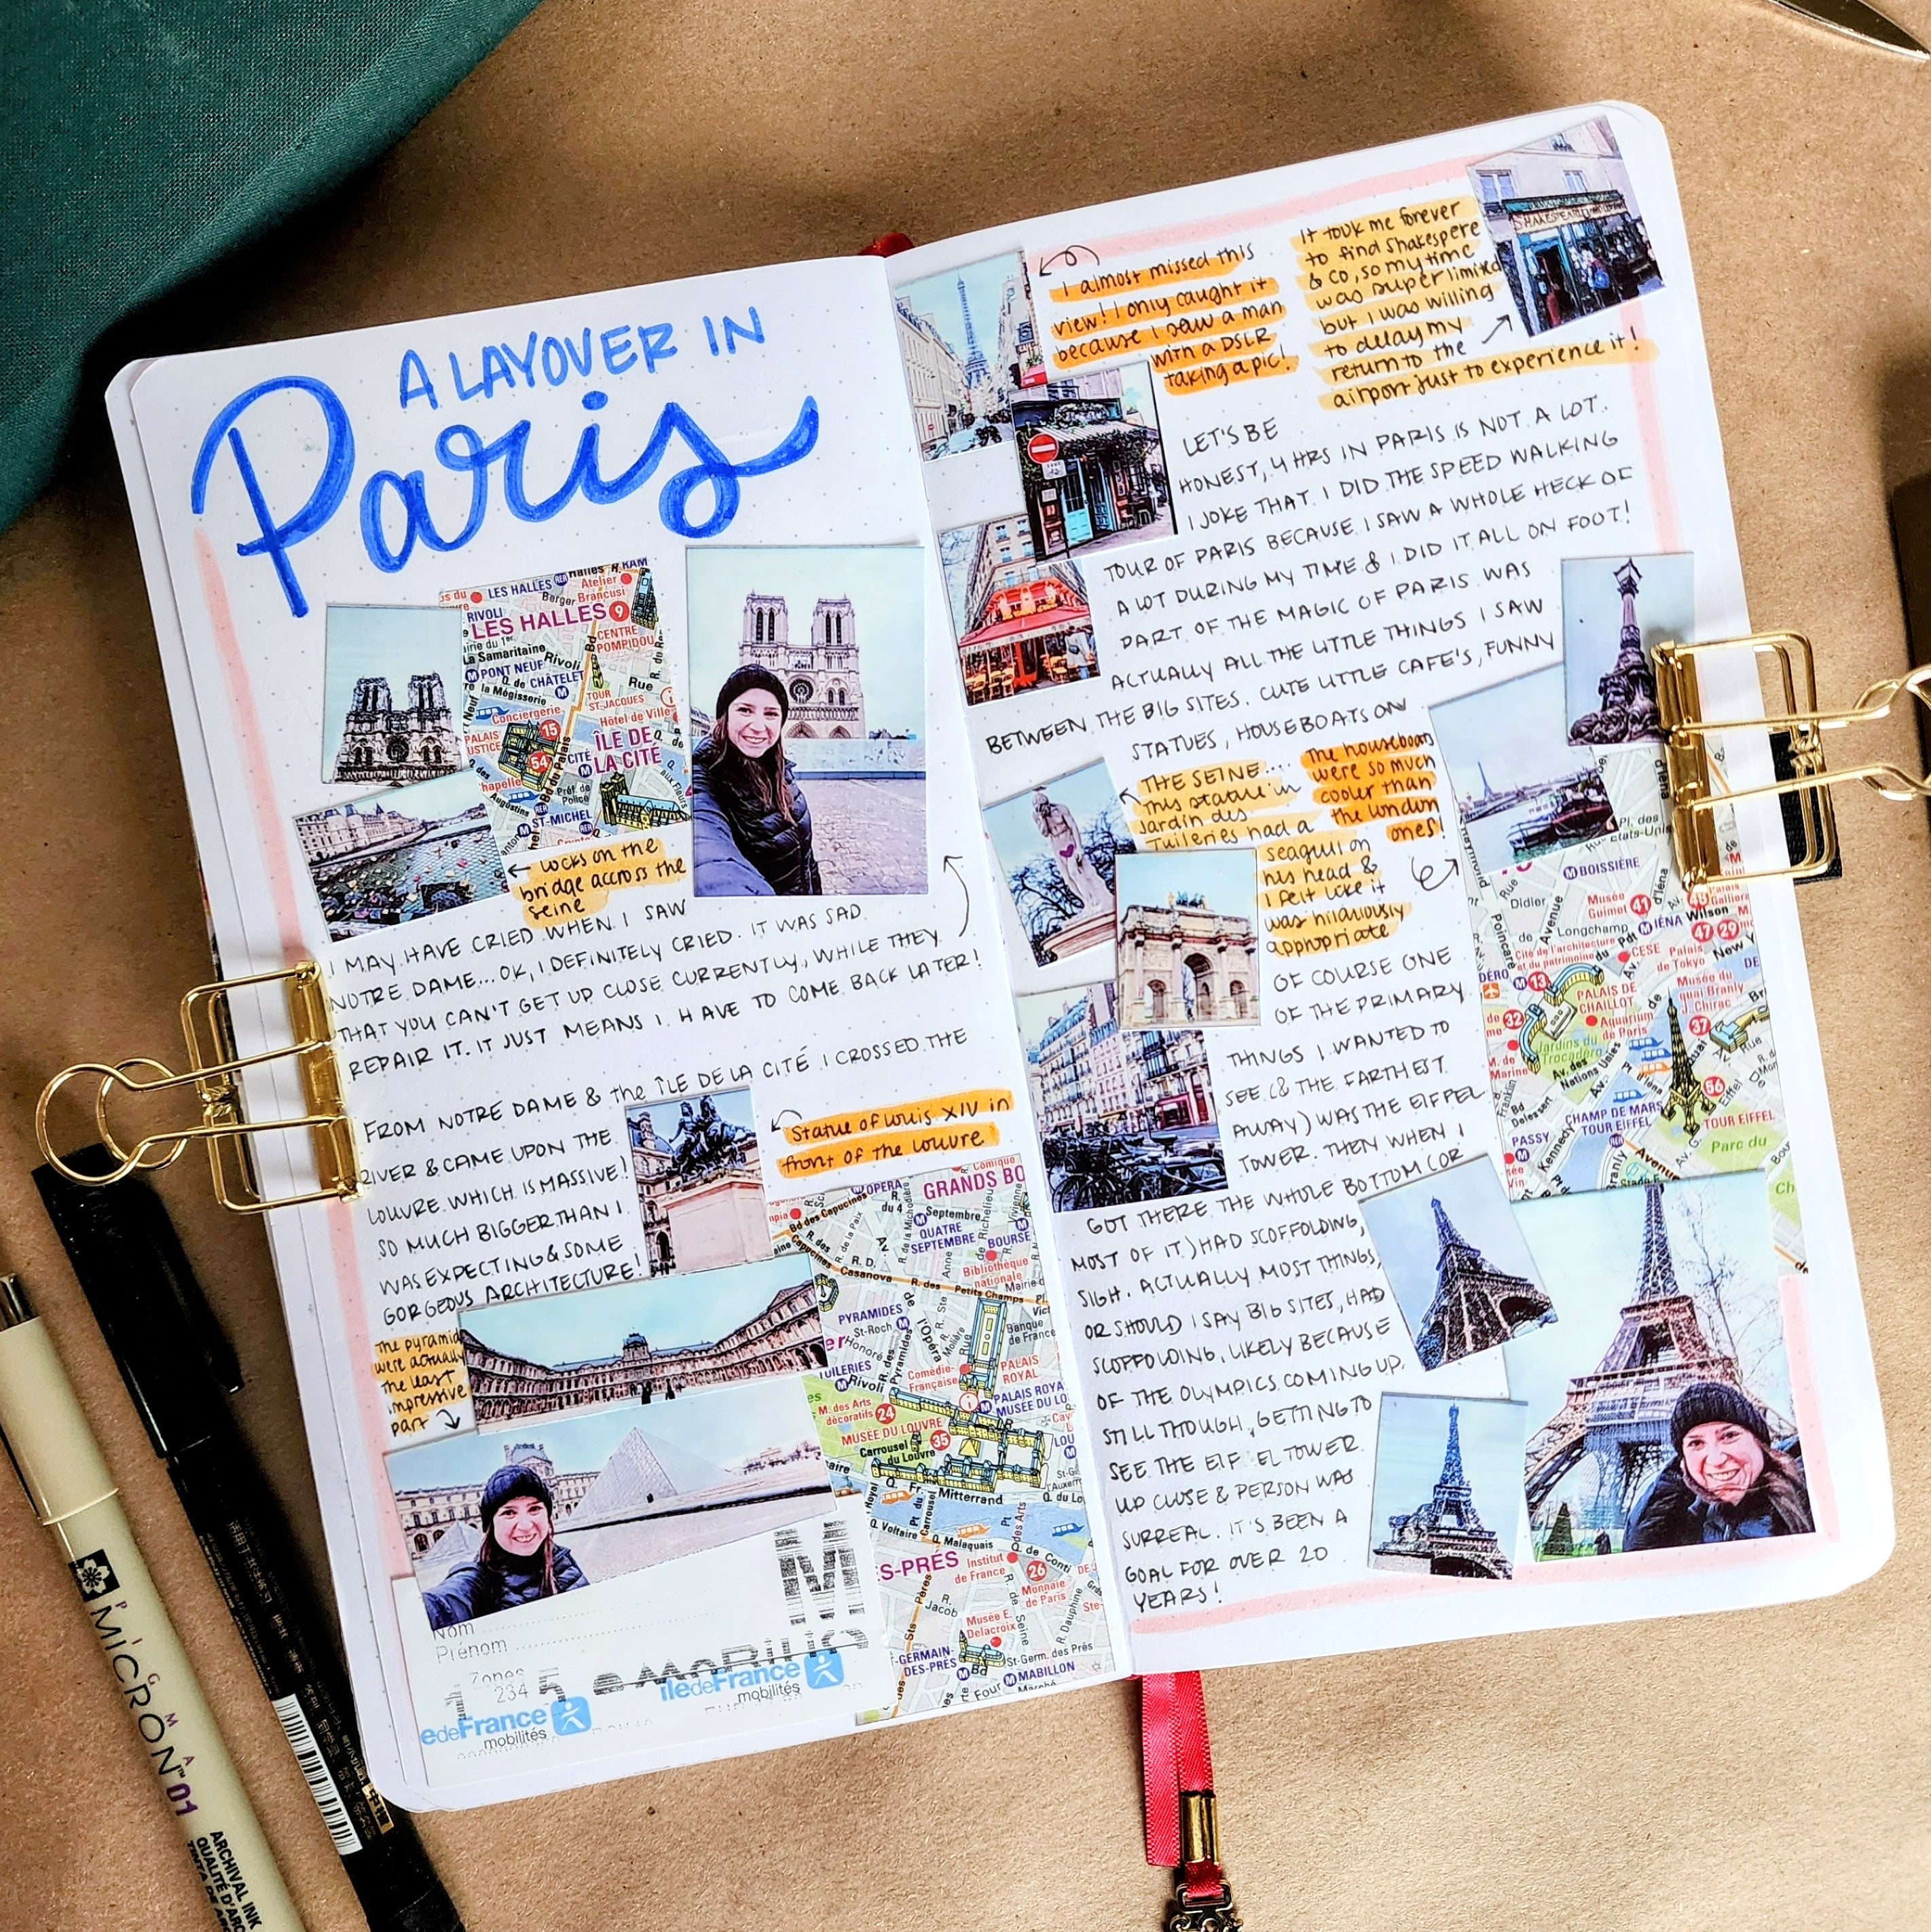 A LAYOVER IN
Paris
← Locks on the
bridge across the
Seine
I MAY HAVE CRIED WHEN I SAW
NOTRE DAME... OK, I DEFINITELY CRIED. IT WAS SAD
THAT YOU CAN'T GET UP CLOSE CURRENTLY, WHILE THEY
REPAIR IT. IT JUST MEANS I HAVE TO COME BACK LATER!
FROM NOTRE DAME & the ÎLE DE LA CITÉ I CROSSED THE
RIVER & CAME UPON THE
LOUVRE WHICH IS MASSIVE!
SO MUCH BIGGER THAN I
WAS EXPECTING & SOME
GORGEOUS ARCHITECTURE!
Statue of Louis XIV in
front of the Louvre
The pyramid
were actually
the least
impressive
part
LES HALLES
LES HALLES 9
RIVOLI
Atelier
Brancusi
Berger
CENTRE
POMPIDOU
La Samaritaine
Rivoli
PONT NEUF
Q. de CHÂTELET
la Mégisserie
Rue
TOUR
ST-JACQUES
Conciergerie
15
Hôtel de Ville
PALAIS
54
CITÉ
ÎLE DE
LA CITÉ
Préf. de
Police
ST-MICHEL
Augustins
Bd du Palais
OPÉRA
GRANDS BO
Bd des Capucines
R. de la Paix
4 Septembre
QUATRE
SEPTEMBRE
BOURSE
R. des Capucines
Casanova
R. des Petits Champs
Bibliothèque
nationale
PYRAMIDES
St-Roch
Banque
de France
TUILERIES
Rivoli
Pyramides
Av. de l'Opéra
Comédie-
Française
PALAIS
ROYAL
M. des Arts
décoratifs 24
PALAIS ROYA
MUSÉE DU LO
MUSÉE DU LOUVRE
35
Carrousel
du Louvre
Fr. Mitterrand
Q. Voltaire
Q. Malaquais
Q. de Conti
S-PRÉS
Institut
de France
26
Monnaie
de Paris
R.
Jacob
Musée E.
Delacroix
R. de Seine
R. Dauphine
T-GERMAIN
DES-PRÉS
St-Germ. des Prés
MABILLON
Four
Nom
Prénom
Zones
234
5
îledeFrance
mobilités
edeFrance
mobilités
I almost missed this
view! I only caught it
because I saw a man
with a DSLR
taking a pic!
It took me forever
to find Shakespere
& co, so my time
was super limited
but I was willing
to delay my
return to the
airport just to experience it!
LET'S BE
HONEST, 4 HRS IN PARIS IS NOT A LOT.
I JOKE THAT I DID THE SPEED WALKING
TOUR OF PARIS BECAUSE I SAW A WHOLE HECK OF
A LOT DURING MY TIME & I DID IT ALL ON FOOT!
PART OF THE MAGIC OF PARIS WAS
ACTUALLY ALL THE LITTLE THINGS I SAW
BETWEEN THE BIG SITES. CUTE LITTLE CAFE'S, FUNNY
STATUES, HOUSEBOATS ON
THE SEINE....
This statue in
Jardin des
Tuileries had a
seagull on
his head &
I felt like it
was hilariously
appropriate
The houseboats
were so much
cooler than
the London
ones!
OF COURSE ONE
OF THE PRIMARY
THINGS I WANTED TO
SEE (& THE FARTHEST
AWAY) WAS THE EIFFEL
TOWER. THEN WHEN I
GOT THERE THE WHOLE BOTTOM (OR
MOST OF IT) HAD SCOFFOLDING,
SIGH. ACTUALLY MOST THINGS,
OR SHOULD I SAY BIG SITES, HAD
SCOFFOLDING, LIKELY BECAUSE
OF THE OLYMPICS COMING UP.
STILL THOUGH, GETTING TO
SEE THE EIFFEL TOWER
UP CLOSE & PERSON WAS
SURREAL. IT'S BEEN A
GOAL FOR OVER 20
YEARS!
BOISSIÈRE
Didier
Musée
Guimet 41
Longchamp
IÉNA
Wilson
47 29
Cité de l'architecture
et du patrimoine
CESE
Palais
de Tokyo
New Y
13
PALAIS DE
CHAILLOT
Musée du
quai Branly
J. Chirac
Aquarium
de Paris
37
32
M. de
Marine
Jardins du
Trocadéro
Av. des
Nations Unies
56
CHAMP DE MARS
TOUR EIFFEL
TOUR EIFFEL
PASSY
Kennedy
Parc du
Avenue
PIGMA
MICRON™ 01
ARCHIVAL INK